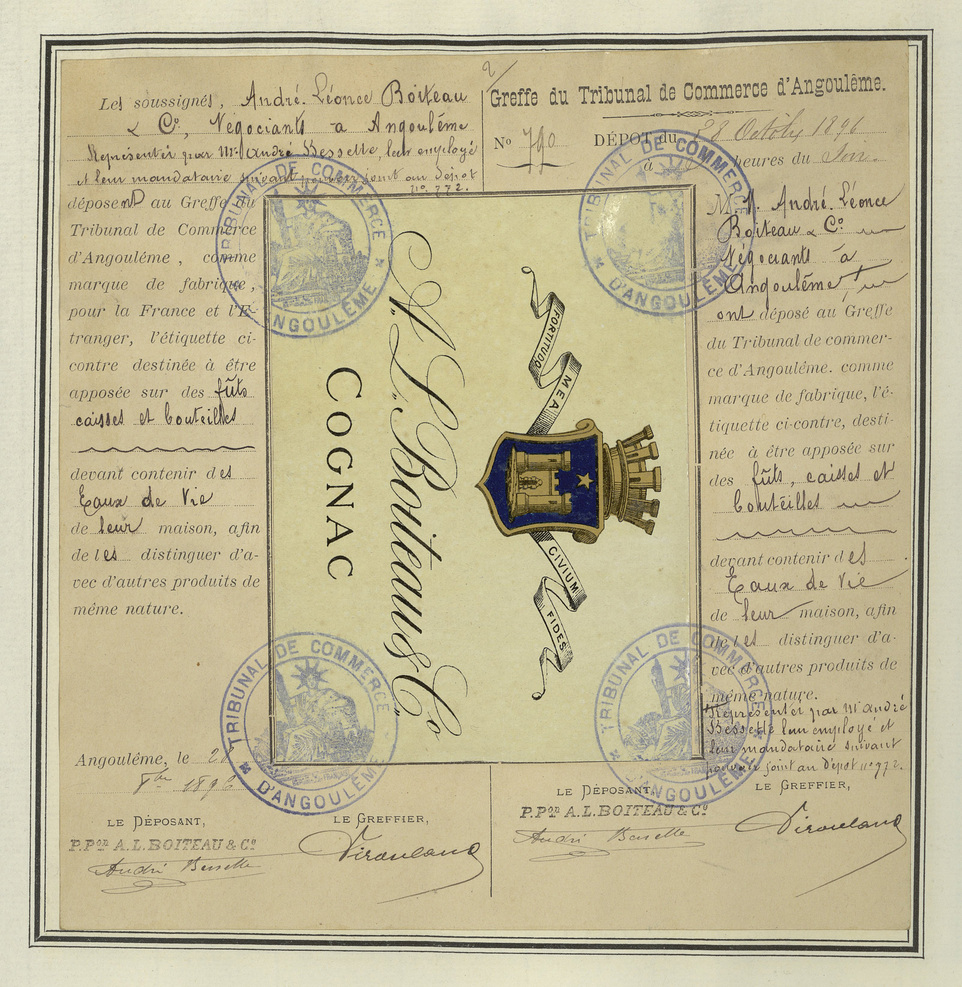 Les soussignés, André. Léonce Boiteau
& Cº, Négociants à Angoulême
Représentés par Mr André Bessette, leur employé
et leur mandataire suivant pouvoir joint au dépôt
nº 772.
déposent au Greffe du
Tribunal de Commerce
d'Angoulême, comme
marque de fabrique,
pour la France et l'É-
tranger, l'étiquette ci-
contre destinée à être
apposée sur des fûts
caisses et bouteilles
devant contenir des
Eaux de Vie
de leur maison, afin
de les distinguer d'a-
vec d'autres produits de
même nature.
Angoulême, le 28
8bre 1896
LE DÉPOSANT,
P.Pon A.L.BOITEAU & Cº
André Bessette
LE GREFFIER,
A.L.Boiteau & Co
COGNAC
FORTITUDO
MEA
CIVIUM
FIDES
2/
Greffe du Tribunal de Commerce d'Angoulême.
No 790 DÉPÔT du 28 Octobre 1896
à heures du Soir.
M. A. André. Léonce
Boiteau & Cº
Négociants à
Angoulême,
ont déposé au Greffe
du Tribunal de commer-
ce d'Angoulême. comme
marque de fabrique, l'é-
tiquette ci-contre, desti-
née à être apposée sur
des fûts, caisses et
bouteilles
devant contenir des
Eaux de Vie
de leur maison, afin
de les distinguer d'a-
vec d'autres produits de
même nature.
Représentés par Mr André
Bessette leur employé et
leur mandataire suivant
pouvoir joint au dépôt nº 772.
LE DÉPOSANT,
P.Pon A.L.BOITEAU & Cº
André Bessette
LE GREFFIER,
TRIBUNAL DE COMMERCE
D'ANGOULÊME
TRIBUNAL DE COMMERCE
D'ANGOULÊME
TRIBUNAL DE COMMERCE
D'ANGOULÊME
TRIBUNAL DE COMMERCE
D'ANGOULÊME